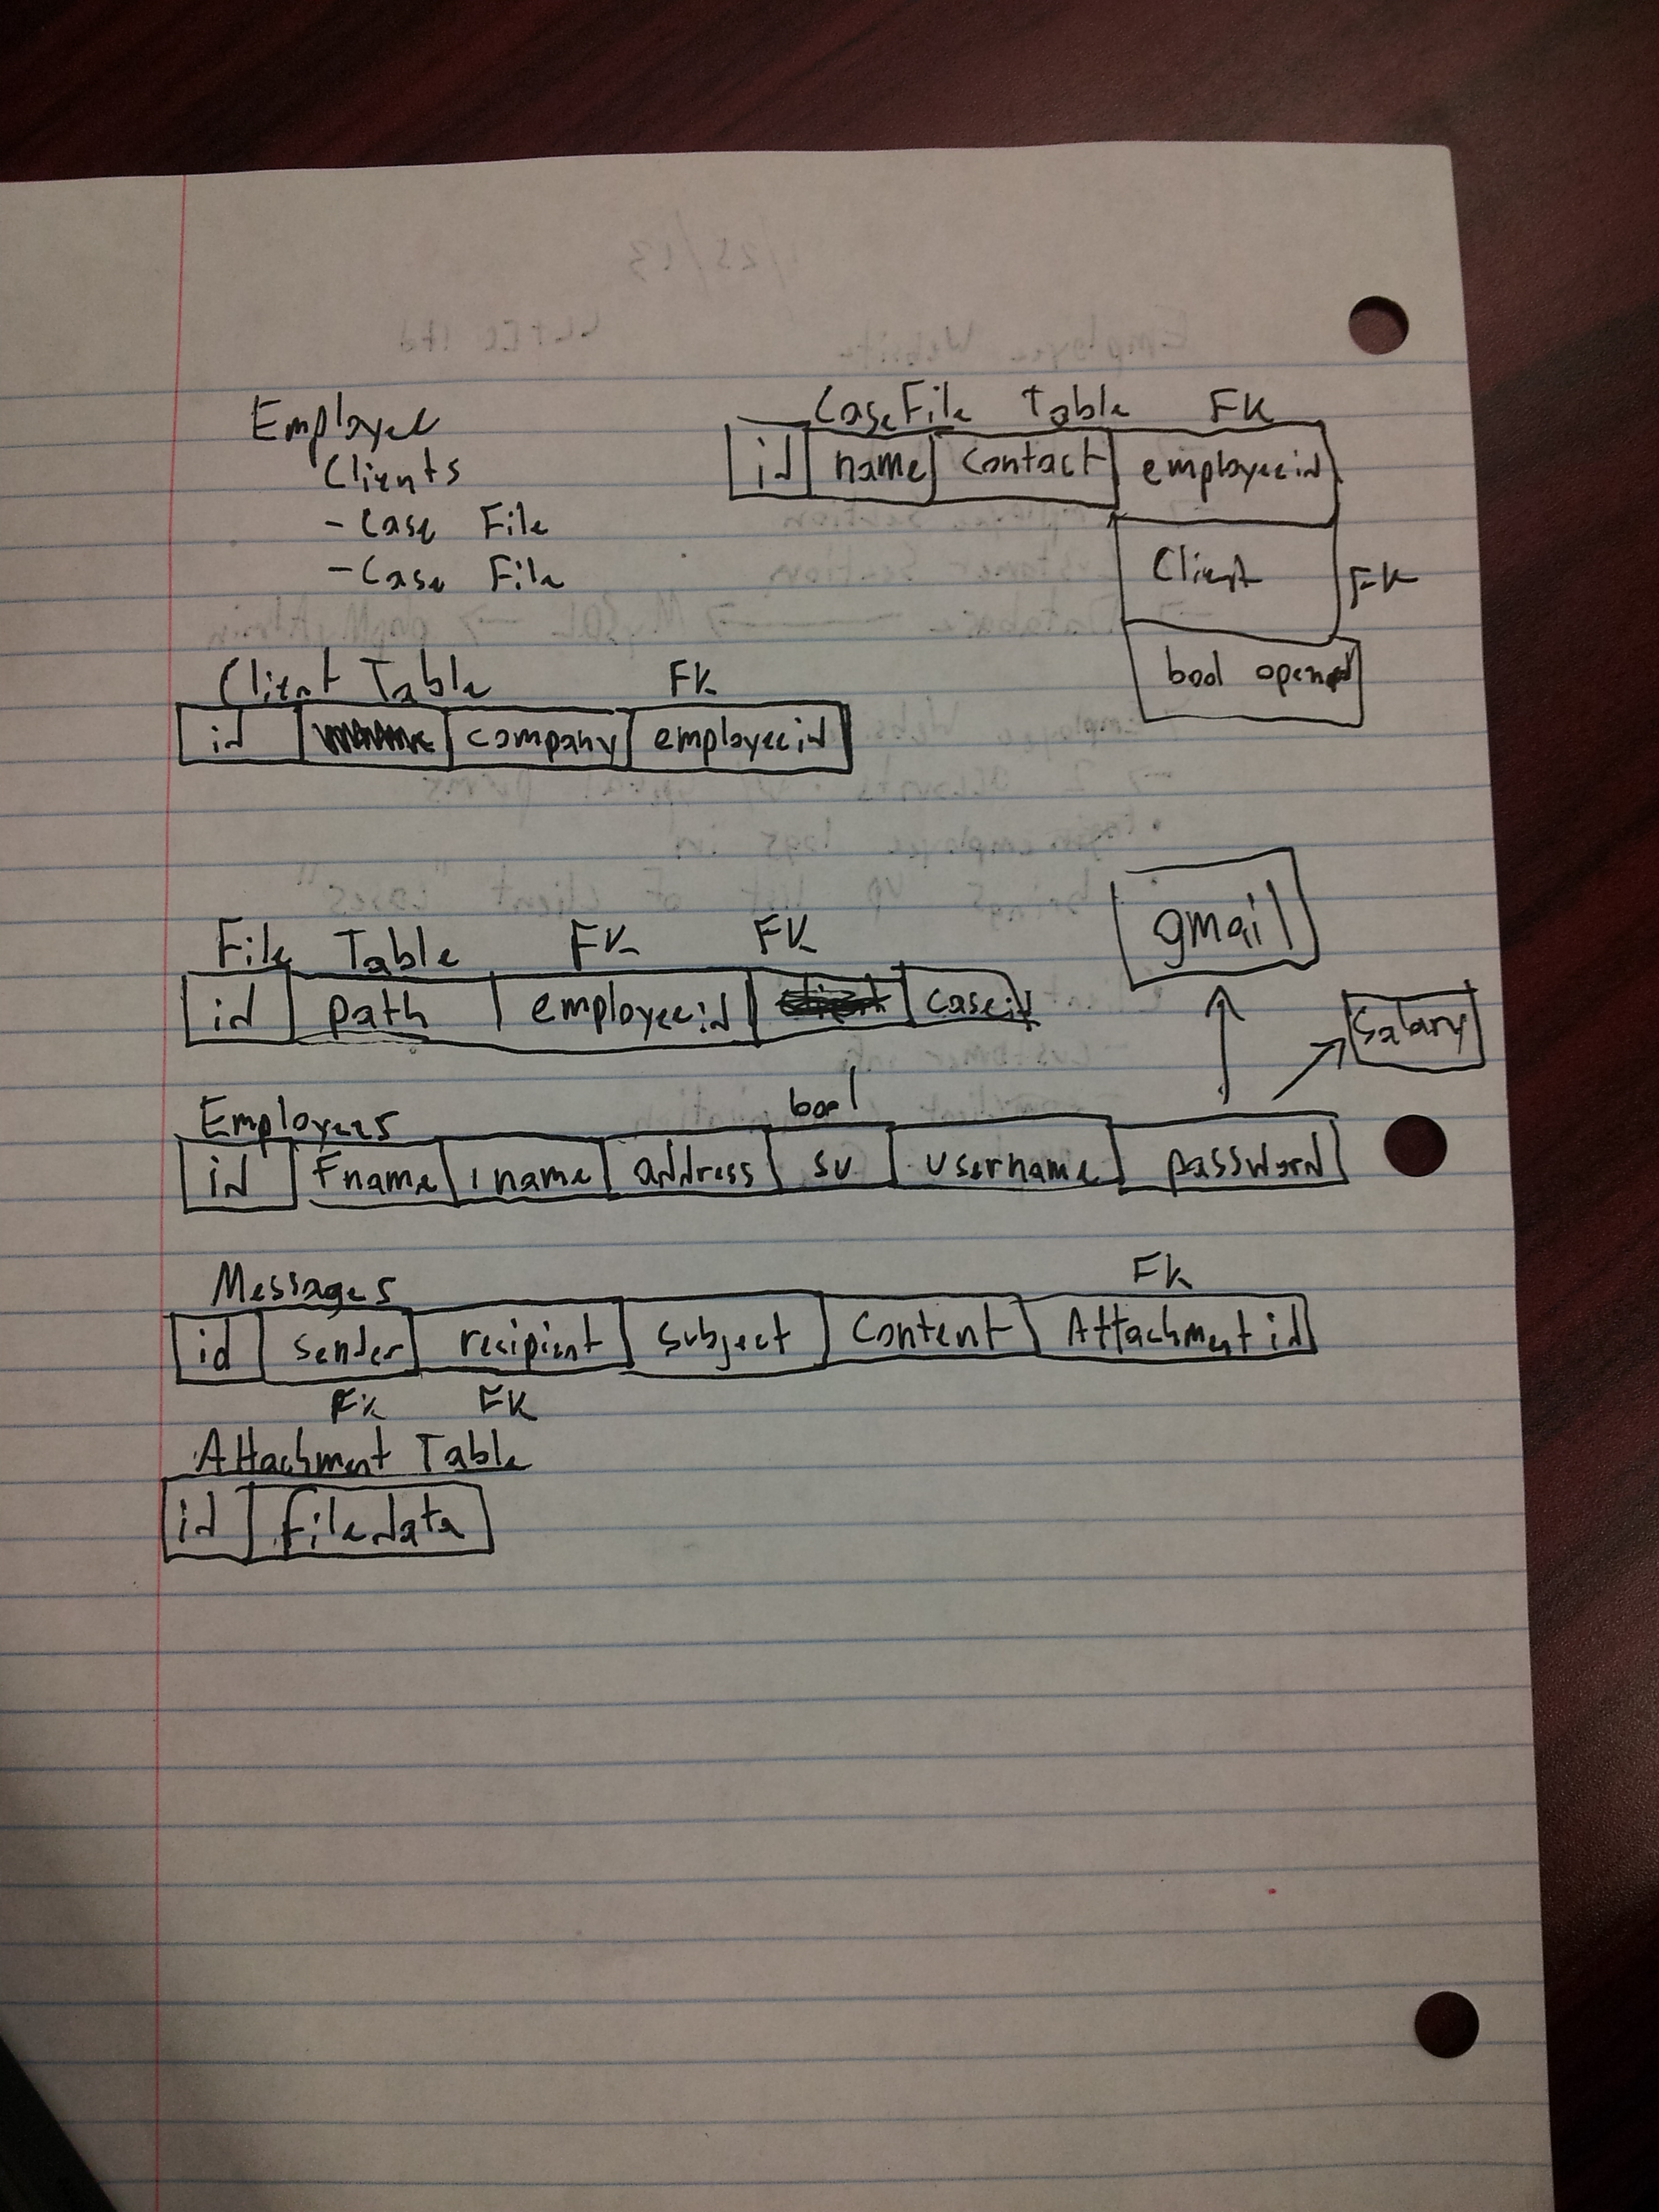 Employee
Clients
- Case File
- Case File
CaseFile Table FK
id name contact employeeid
Client FK
bool opened
Client Table FK
id company employeeid
gmail
File Table FK FK
id path employeeid caseid
salary
Employees bool
id Fname lname address su username password
Messages FK
id sender recipient subject Content Attachment id
FK FK
Attachment Table
id filedata